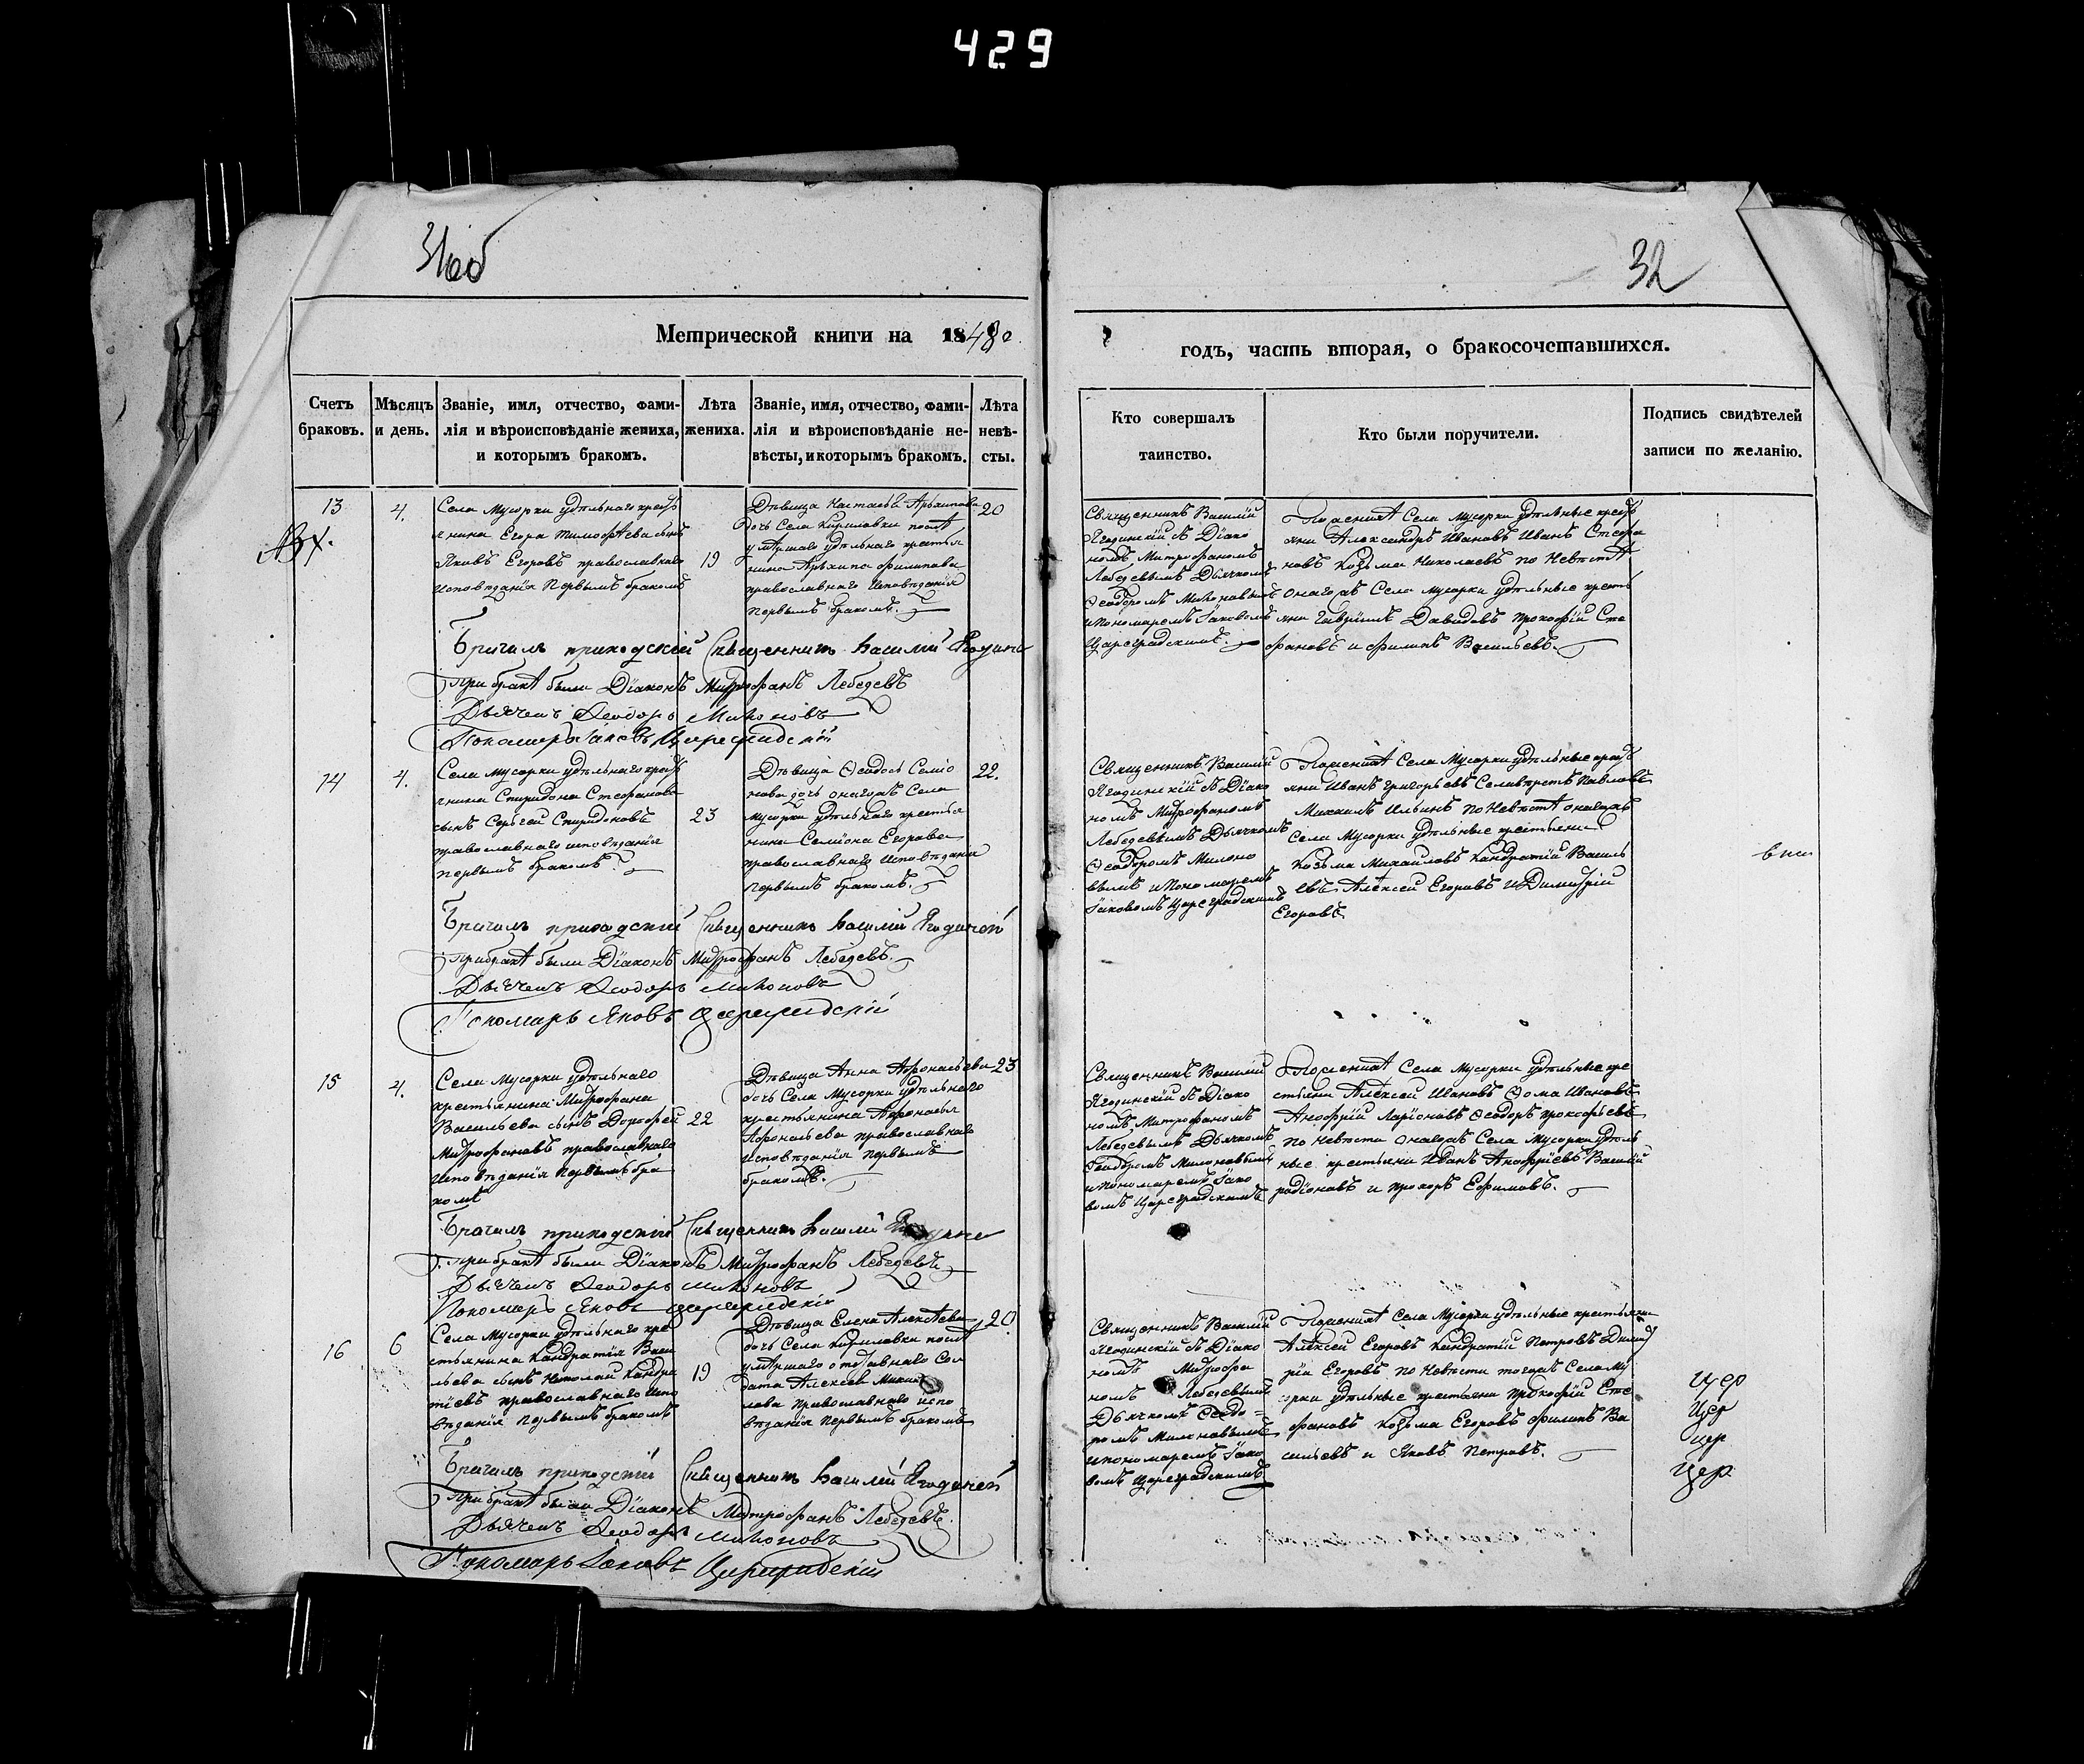 429
31об
32
Метрической книги на 1848й
годъ, часть вторая, о бракосочетавшихся.
Счетъ браковъ.
Мѣсяцъ и день.
Званіе, имя, отчество, фами-
лія и вѣроисповѣданіе жениха,
и которымъ бракомъ.
Лѣта
жениха.
Званіе, имя, отчество, фами-
лія и вѣроисповѣданіе не-
вѣсты, и которымъ бракомъ.
Лѣта
невѣ-
сты.
Кто совершалъ
таинство.
Кто были поручители.
Подпись свидѣтелей
записи по желанію.
13
4.
Села Мусорки удѣльнаго кресть
янина Егора Тимофѣева сынъ
Яковъ Егоровъ православнаго
исповѣданія первымъ бракомъ
19
Дѣвица Настасья Архипова
дочь Села Кириловки послѣ
умѣршаго удѣльнаго крестья
нина Архипа Филипава
православнаго исповѣданія
первымъ бракомъ.
20
Священникъ Василій
Ягодинскій съ Діако
номъ Митрофаномъ
Лебедевымъ Дьячкомъ
Ѳеодоромъ Милоновымъ
и Пономаремъ Іаковомъ
Цареградскимъ.
По женихѣ Села Мусорки удѣльные кресть
яни Александръ Ивановъ Иванъ Стефа
новъ Козьма Николаевъ по Невѣстѣ
онагожъ Села Мусорки удѣльные кресть
яни Гаврiилъ Давидовъ Прокофій Сте
фановъ и Филипъ Васильевъ.
Брачилъ приходскій Священникъ Василій Ягодинс
При бракѣ были Діаконъ Митрофанъ Лебедевъ
Дьячекъ Ѳеодоръ Милоновъ
Пономарь Іаковъ Цареградскій
14
4.
Села Мусорки удѣльнаго кресть
янина Спиридона Стефанова
сынъ Сергѣй Спиридоновъ
православнаго исповѣданія
первымъ бракомъ.
23
Дѣвица Ѳеодось Семіо
нова дочь онагожъ Села
Мусорки удѣльнаго крестья
нина Семіона Егорова
православнаго исповѣданія
первымъ бракомъ.
22.
Священникъ Василій
Ягодинскій съ Діако
номъ Митрофаномъ
Лебедевымъ Дьячкомъ
Ѳеодоромъ Милоно
вымъ и Пономаремъ
Іаковомъ Цареградскимъ
По женихѣ Села Мусорки удѣльные кресть
яни Иванъ Григорьевъ Селивѣрстъ Павловъ
Михаилъ Ильинъ по Невѣстѣ онагожъ
Села Мусорки удѣльные крестьяни
Козьма Михайловъ Кандратій Василь
евъ Алѣксей Егоровъ и Димитрій
Егоровъ.
Брачилъ приходскій Священникъ Василій Ягодинскій
При бракѣ были Діаконъ Митрофанъ Лебедевъ.
Дьячекъ Ѳеодоръ Милоновъ
Пономарь Яковъ Цареградскій
15
4.
Села Мусорки удѣльнаго
крестьянина Митрофана
Васильева сынъ Дорофей
Митрофановъ православнаго
исповѣданія первымъ бра
комъ
22
Дѣвица Анна Афонасьева
дочь Села Мусорки удѣльнаго
крестьянина Афонасья
Афонасьева православнаго
исповѣданія первымъ
бракомъ.
23
Священникъ Василій
Ягодинскій съ Діако
номъ Митрофаномъ
Лебедевымъ Дьячкомъ
Ѳеодоромъ Милоновымъ
и Пономаремъ Іако
вомъ Цареградскимъ
По женихѣ Села Мусорки удѣльные кре
стьяни Алѣксей Ивановъ Ѳома Ивановъ
Анофрій Ларіоновъ Ѳеодоръ Прокофьевъ
по Невѣсти онагожъ Села Мусорки удѣль
ные крестьяни Иванъ Анофріевъ Василій
Радіоновъ и Прохоръ Ефимовъ.
Брачилъ приходскій Священникъ Василій
При бракѣ были Діаконъ Митрофанъ Лебедевъ
Дьячекъ Ѳеодоръ Милоновъ
Пономарь Яковъ Цареградскій
16
6
Села Мусорки удѣльнаго кре
стьянина Кандратія Васи
льева сынъ Николай Кандра
тіевъ православнаго испо
вѣданія первымъ бракомъ
19
Дѣвица Елена Алексѣева
дочь Села Кириловки послѣ
умѣршаго отставнаго Сол
дата Алексѣя Михаи
лова православнаго испо
вѣданія первымъ бракомъ
20.
Священникъ Василій
Ягодинскій съ Діако
номъ Митрофа
номъ Лебедевымъ
Дьячкомъ Ѳеодо=
ромъ Милоновымъ
и пономаремъ Іако
вомъ Цареградскимъ
По женихѣ Села Мусорки удѣльные крестьяни
Алѣксей Егоровъ Кандратій Петровъ Димит
рія Егоровъ по Невѣсти тогожъ Села Му
сорки удѣльные крестьяни Прокофій Сте
фановъ Козьма Егоровъ Филипъ Ва
сильевъ и Яковъ Петровъ.
Цер
Цер
Цер
Цер
Брачилъ приходскій Священникъ Василій Ягодинскій
При бракѣ были Діаконъ Митрофанъ Лебедевъ.
Дьячекъ Ѳеодоръ Милоновъ
Пономарь Іаковъ Цареградскій